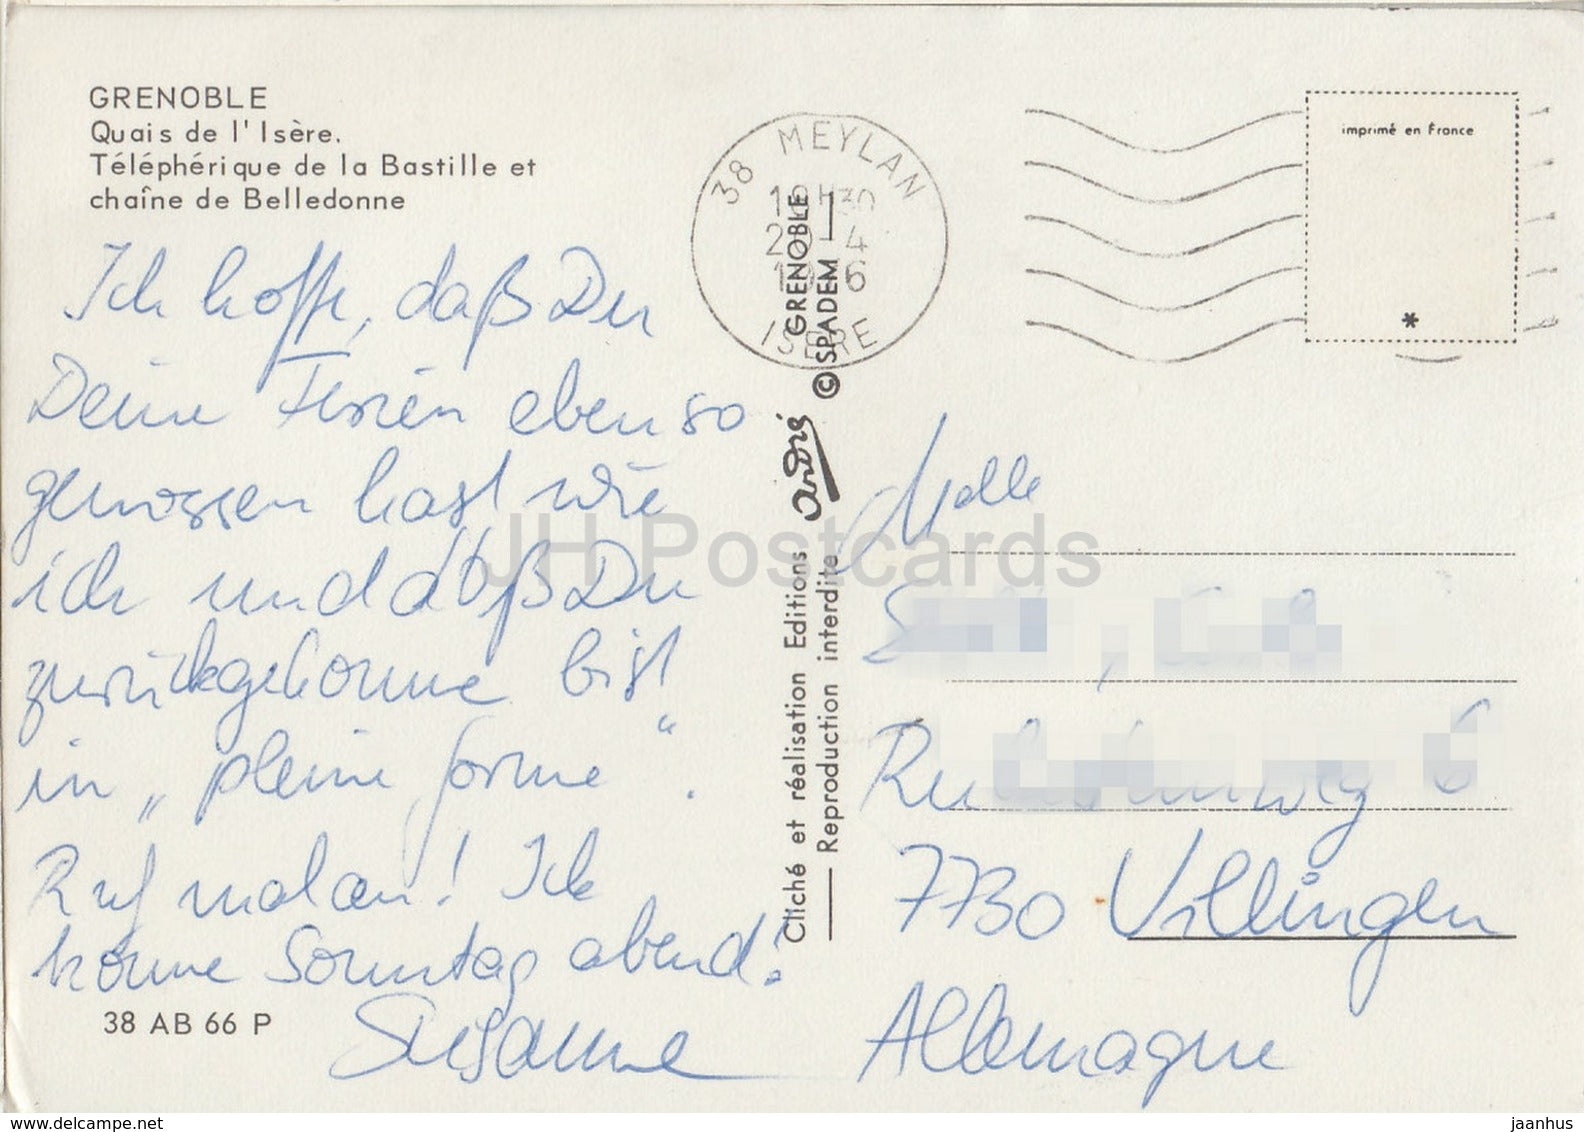 GRENOBLE
Quais de l'Isère.
Téléphérique de la Bastille et
chaîne de Belledonne
Ich hoffe, daß Du
Deine Ferien ebenso
genossen hast wie
ich und daß Du
zurückgekomme bist
in „pleine forme“.
Ruf mal an! Ich
komme Sonntag abend!
Susanne
38 AB 66 P
38 MEYLAN
ISERE
imprimé en France
*
GRENOBLE
© SPADEM
Cliché et réalisation Editions André
Reproduction interdite
Melle
7730 Villingen
Allemagne
JH Postcards
www.delcampe.net
jaanhus